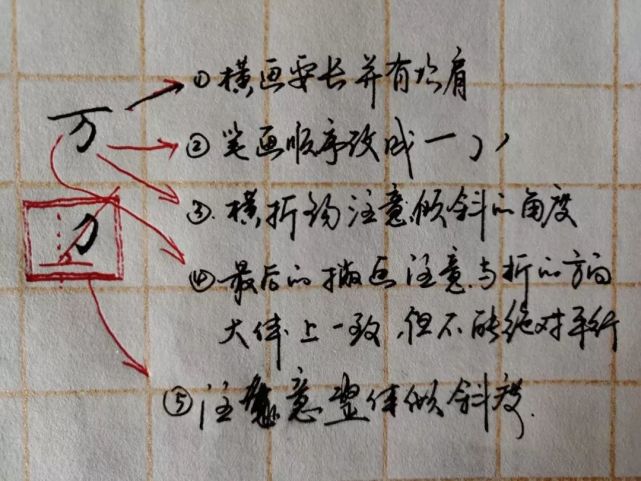 ①横画要长并有抗肩
万
②笔画顺序改成一㇆丿
③.横折钩注意倾斜的角度
④最后的撇画注意与折的方向
大体上一致,但不能绝对平行
⑤注意整体倾斜度.